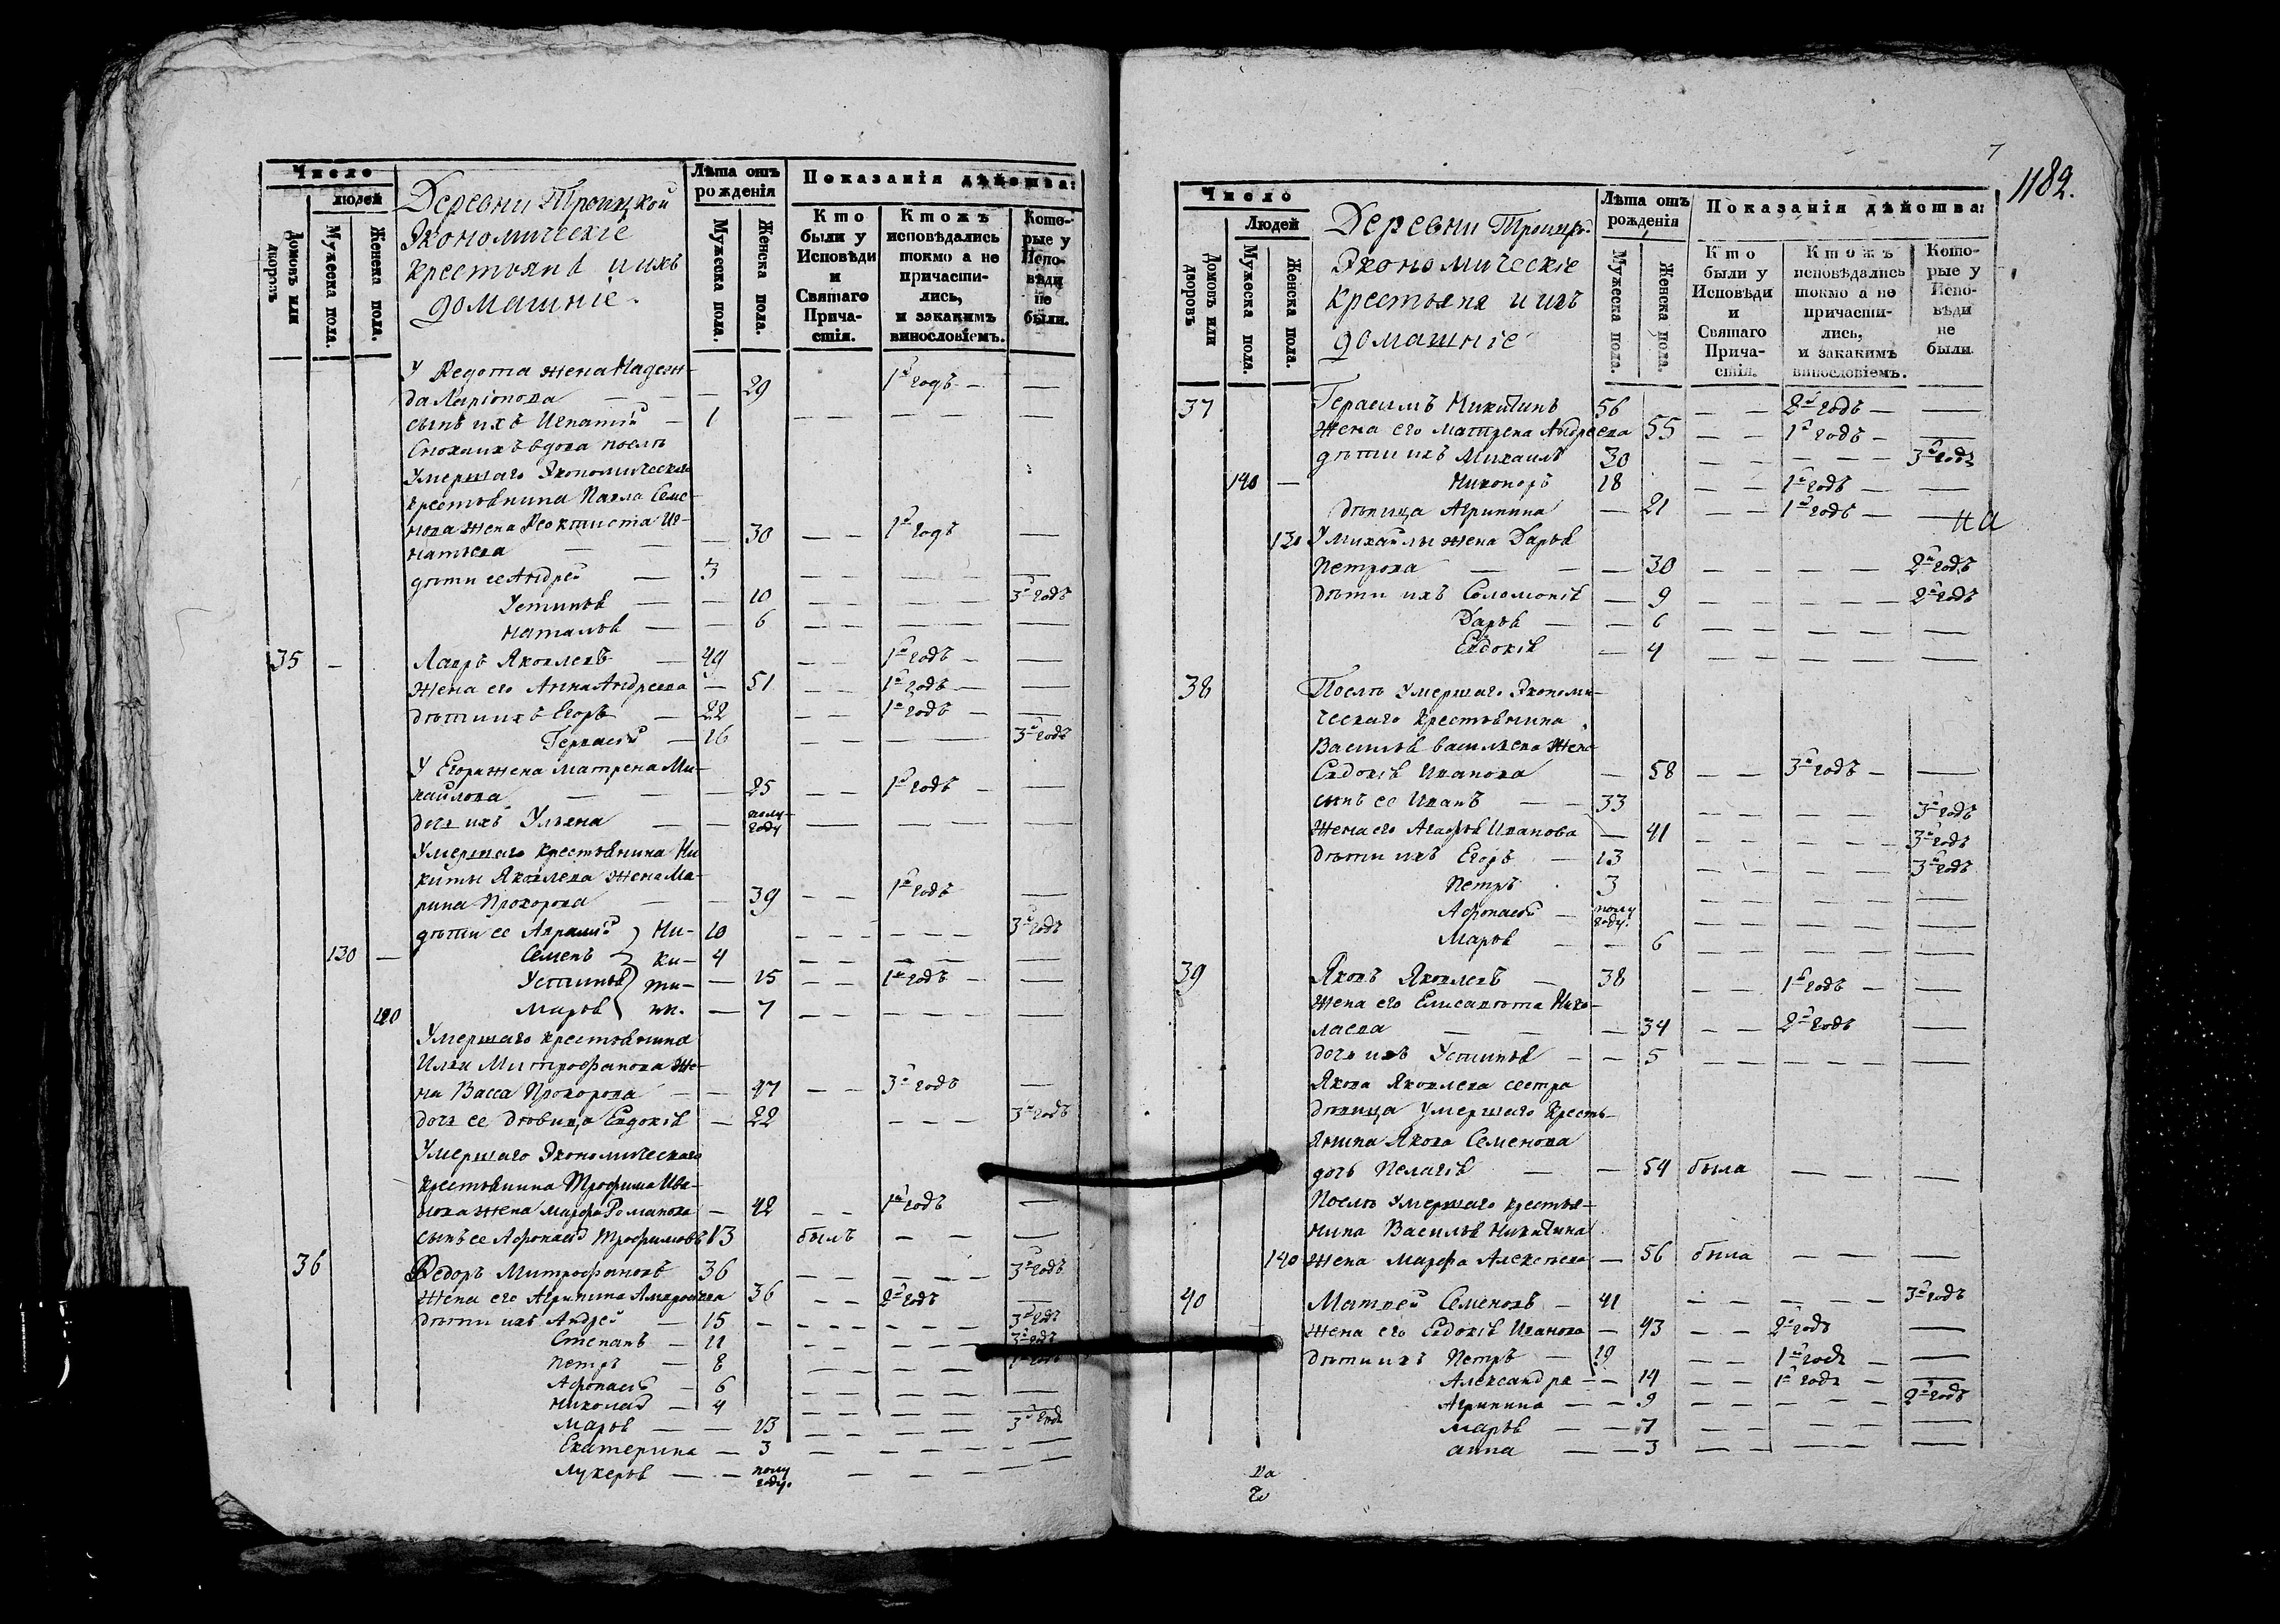 Число
людей
Домовъ или дворовъ
Мужеска пола.
Женска пола.
Деревни Троицкой
Экономическіе
крестьянѣ и ихъ
домашніе.
Лѣта отъ рожденія
Мужеска пола.
Женска пола.
Показанія дѣйства:
Кто были у Исповѣди и Святаго Причастія.
Ктожъ исповѣдались токмо а не причастились, и закакимъ винословіемъ.
Которые у Исповѣди не были.
У Ѳедота жена Надеж-
да Ларіонова — — — 29 1й годъ — —
сынъ ихъ Игнатій — 1 — — — — —
Сноха ихъ вдова послѣ
умершаго Экономическаго
крестьянина Павла Семе-
нова жена Ѳеоктиста Иг-
натьева — — 30 — — 1й годъ —
дѣти ее Андрей — 3 — — — — —
Устинья — — 10 — — — 3й годъ
Наталья — — 6 — — — — —
35 — Лавръ Яковлевъ — 49 — — 1й годъ — —
жена его Анна Андреева — 51 — — 1й годъ — —
дѣти ихъ Егоръ — 22 — — 1й годъ — —
Гервасій — 16 — — — — 3й годъ
У Егора жена Матрена Ми-
хайлова — — — 25 — — 1й годъ — —
дочь ихъ Ульяна — — полу году — — — —
Умершаго крестьянина Ни
киты Яковлева жена Ма-
рина Прохорова — — 39 — — 1й годъ —
дѣти ее Аврамій } Ни- 10 — — — — 3й годъ
130 — Семенъ } ки- 4 — — — — —
Устинья } ти- — 15 — — 1й годъ — —
120 Марья } ны. — 7 — — — — —
Умершаго крестьянина
Ильи Митрофанова же-
на Васса Прохорова — — 47 — — 3й годъ —
дочь ее дѣвица Евдокія — 22 — — — 3й годъ
Умершаго Экономическаго
крестьянина Трофима Ива-
нова жена Марфа Романова — 42 — — 1й годъ —
сынъ ее Афонасій Трофимовъ 13 былъ — — —
36 Ѳедоръ Митрофановъ 36 — — — — 3й годъ
жена его Агрипина 36 — — 2й годъ —
дѣти ихъ Андрей — 15 — — — — — 3й годъ
Степанъ — 11 — — — — — 3й годъ
Петръ — 8 — — — — 1й годъ
Афонасій — 6 — — — — —
Николай — 4 — — — — —
Марья — — 13 — — — — 3й годъ
Екатерина — 3 — — — — —
Лукерья — — полу году. — — — — —
7
1182.
Число
Людей
Домовъ или дворовъ
Мужеска пола.
Женска пола.
Деревни Троицкой
Экономическіе
крестьяне и ихъ
домашніе
Лѣта отъ рожденія
Мужеска пола.
Женска пола.
Показанія дѣйства:
Кто были у Исповѣди и Святаго Причастія.
Ктожъ исповѣдались токмо а не причастились, и закакимъ винословіемъ.
Которые у Исповѣди не были.
37 Герасимъ Никитинъ 56 — — 2й годъ — —
жена его Матрена Андреева 55 — — 1й годъ — —
дѣти ихъ Михаилъ 30 — — — — 3й годъ
140 — Никоноръ 18 — — 1й годъ — —
дѣвица Агрипина — 21 — — 1й годъ — —
на
130 У Михайлы жена Дарья
Петрова — — — 30 — — — — 2й годъ
дѣти ихъ Соломонія — 9 — — — — 2й годъ
Дарья — — 6 — — — — —
Евдокія — 4 — — — — —
38 Послѣ умершаго Экономи-
ческаго крестьянина
Василья Васильева жена
Евдокія Иванова — 58 — — 3й годъ — —
сынъ ее Иванъ — — 33 — — — — 3й годъ
жена его Агафья Иванова — 41 — — — — 3й годъ
дѣти ихъ Егоръ — 13 — — — — 3й годъ
Петръ 3 — — — — —
Афонасій — полу году. — — — — —
Марья — — 6 — — — — —
39 Яковъ Яковлевъ — 38 — — 1й годъ — —
жена его Елисавета Нико-
лаева — — — 34 — — 2й годъ —
дочь ихъ Устинья — — 5 — — — — —
Якова Яковлева сестра
дѣвица умершаго кресть-
янина Якова Семенова
дочь Пелагія — — 54 была — —
Послѣ умершаго крестья-
нина Василья Никитина
140 жена Марфа Алексѣева — 56 была — — —
40 Матвей Семеновъ — 41 — — — — 3й годъ
жена его Евдокія Иванова — 43 — — 2й годъ —
дѣти ихъ Петръ — 19 — — 1й годъ — —
Александра — — 14 — — 1й годъ — —
Агрипина — — 9 — — — — 2й годъ
Марья — — 7 — — — — —
Анна — — 3 — — — — —